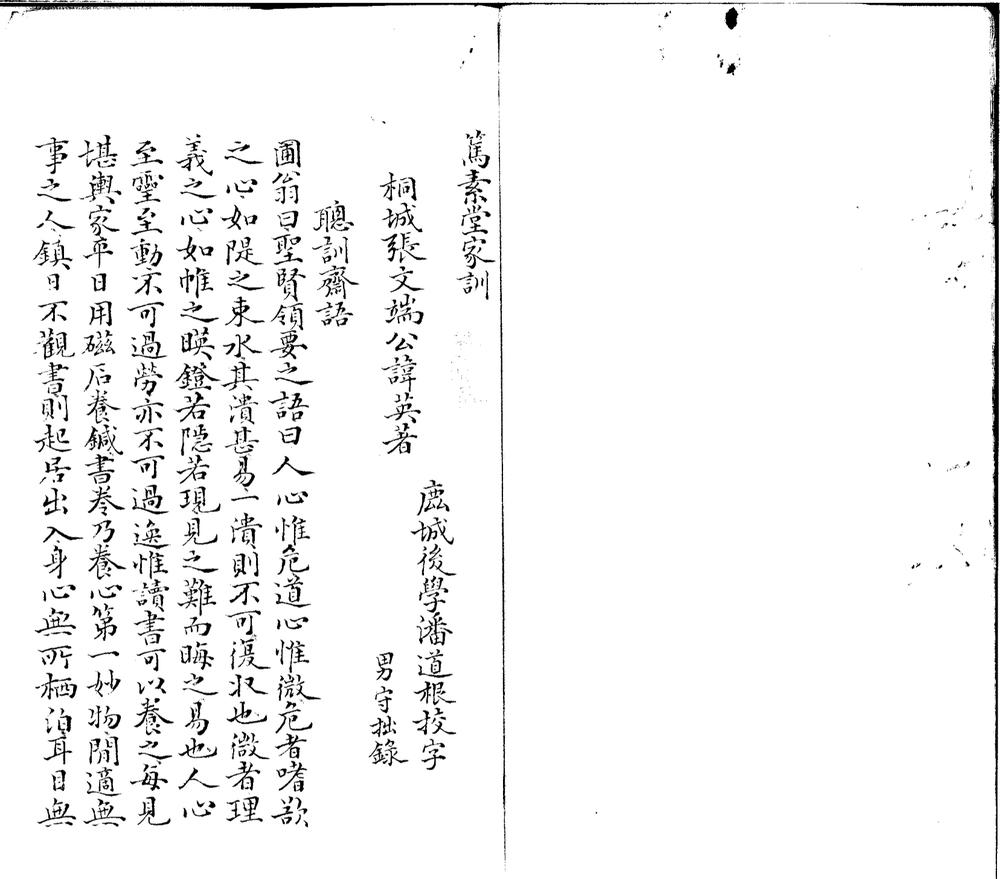 篤素堂家訓
鹿城後學潘道根挍字
桐城張文端公諱英著
男守拙錄
聰訓齋語
圃翁曰聖賢領要之語曰人心惟危道心惟微危者嗜欲
之心如隄之束水其潰甚易一潰則不可復收也微者理
義之心如帷之暎鐙若隱若現見之難而晦之易也人心
至靈至動不可過勞亦不可過逸惟讀書可以養之每見
堪輿家平日用磁石養鍼書卷乃養心第一妙物閒適無
事之人鎮日不觀書則起居出入身心無所栖泊耳目無